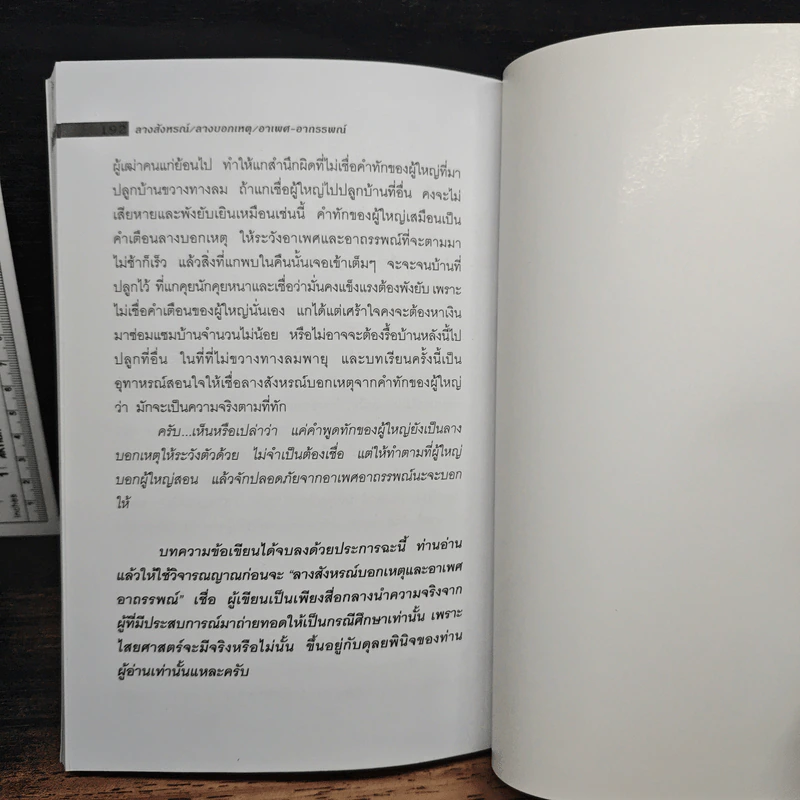 192 ลางสังหรณ์/ลางบอกเหตุ/อาเพศ-อาถรรพณ์
ผู้เฒ่าคนแก่ย้อนไป ทำให้แกสำนึกผิดที่ไม่เชื่อคำทักของผู้ใหญ่ที่มา
ปลูกบ้านขวางทางลม ถ้าแกเชื่อผู้ใหญ่ไปปลูกบ้านที่อื่น คงจะไม่
เสียหายและพังยับเยินเหมือนเช่นนี้ คำทักของผู้ใหญ่เสมือนเป็น
คำเตือนลางบอกเหตุ ให้ระวังอาเพศและอาถรรพณ์ที่จะตามมา
ไม่ช้าก็เร็ว แล้วสิ่งที่แกพบในคืนนั้นเจอเข้าเต็มๆ จะจะจนบ้านที่
ปลูกไว้ ที่แกคุยนักคุยหนาและเชื่อว่ามั่นคงแข็งแรงต้องพังยับ เพราะ
ไม่เชื่อคำเตือนของผู้ใหญ่นั่นเอง แกได้แต่เศร้าใจคงจะต้องหาเงิน
มาซ่อมแซมบ้านจำนวนไม่น้อย หรือไม่อาจจะต้องรื้อบ้านหลังนี้ไป
ปลูกที่อื่น ในที่ที่ไม่ขวางทางลมพายุ และบทเรียนครั้งนี้เป็น
อุทาหรณ์สอนใจให้เชื่อลางสังหรณ์บอกเหตุจากคำทักของผู้ใหญ่
ว่า มักจะเป็นความจริงตามที่ทัก
ครับ...เห็นหรือเปล่าว่า แค่คำพูดทักของผู้ใหญ่ยังเป็นลาง
บอกเหตุให้ระวังตัวด้วย ไม่จำเป็นต้องเชื่อ แต่ให้ทำตามที่ผู้ใหญ่
บอกผู้ใหญ่สอน แล้วจักปลอดภัยจากอาเพศอาถรรพณ์นะจะบอก
ให้
บทความข้อเขียนได้จบลงด้วยประการฉะนี้ ท่านอ่าน
แล้วให้ใช้วิจารณญาณก่อนจะ "ลางสังหรณ์บอกเหตุและอาเพศ
อาถรรพณ์" เชื่อ ผู้เขียนเป็นเพียงสื่อกลางนำความจริงจาก
ผู้ที่มีประสบการณ์มาถ่ายทอดให้เป็นกรณีศึกษาเท่านั้น เพราะ
ไสยศาสตร์จะมีจริงหรือไม่นั้น ขึ้นอยู่กับดุลยพินิจของท่าน
ผู้อ่านเท่านั้นแหละครับ
Inches